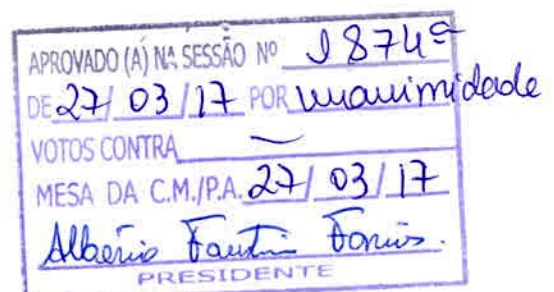 APROVADO (A) NA SESSÃO Nº 1874ª
DE 27/ 03 / 17 POR unanimidade
VOTOS CONTRA —
MESA DA C.M./P.A. 27/ 03/ 17
PRESIDENTE